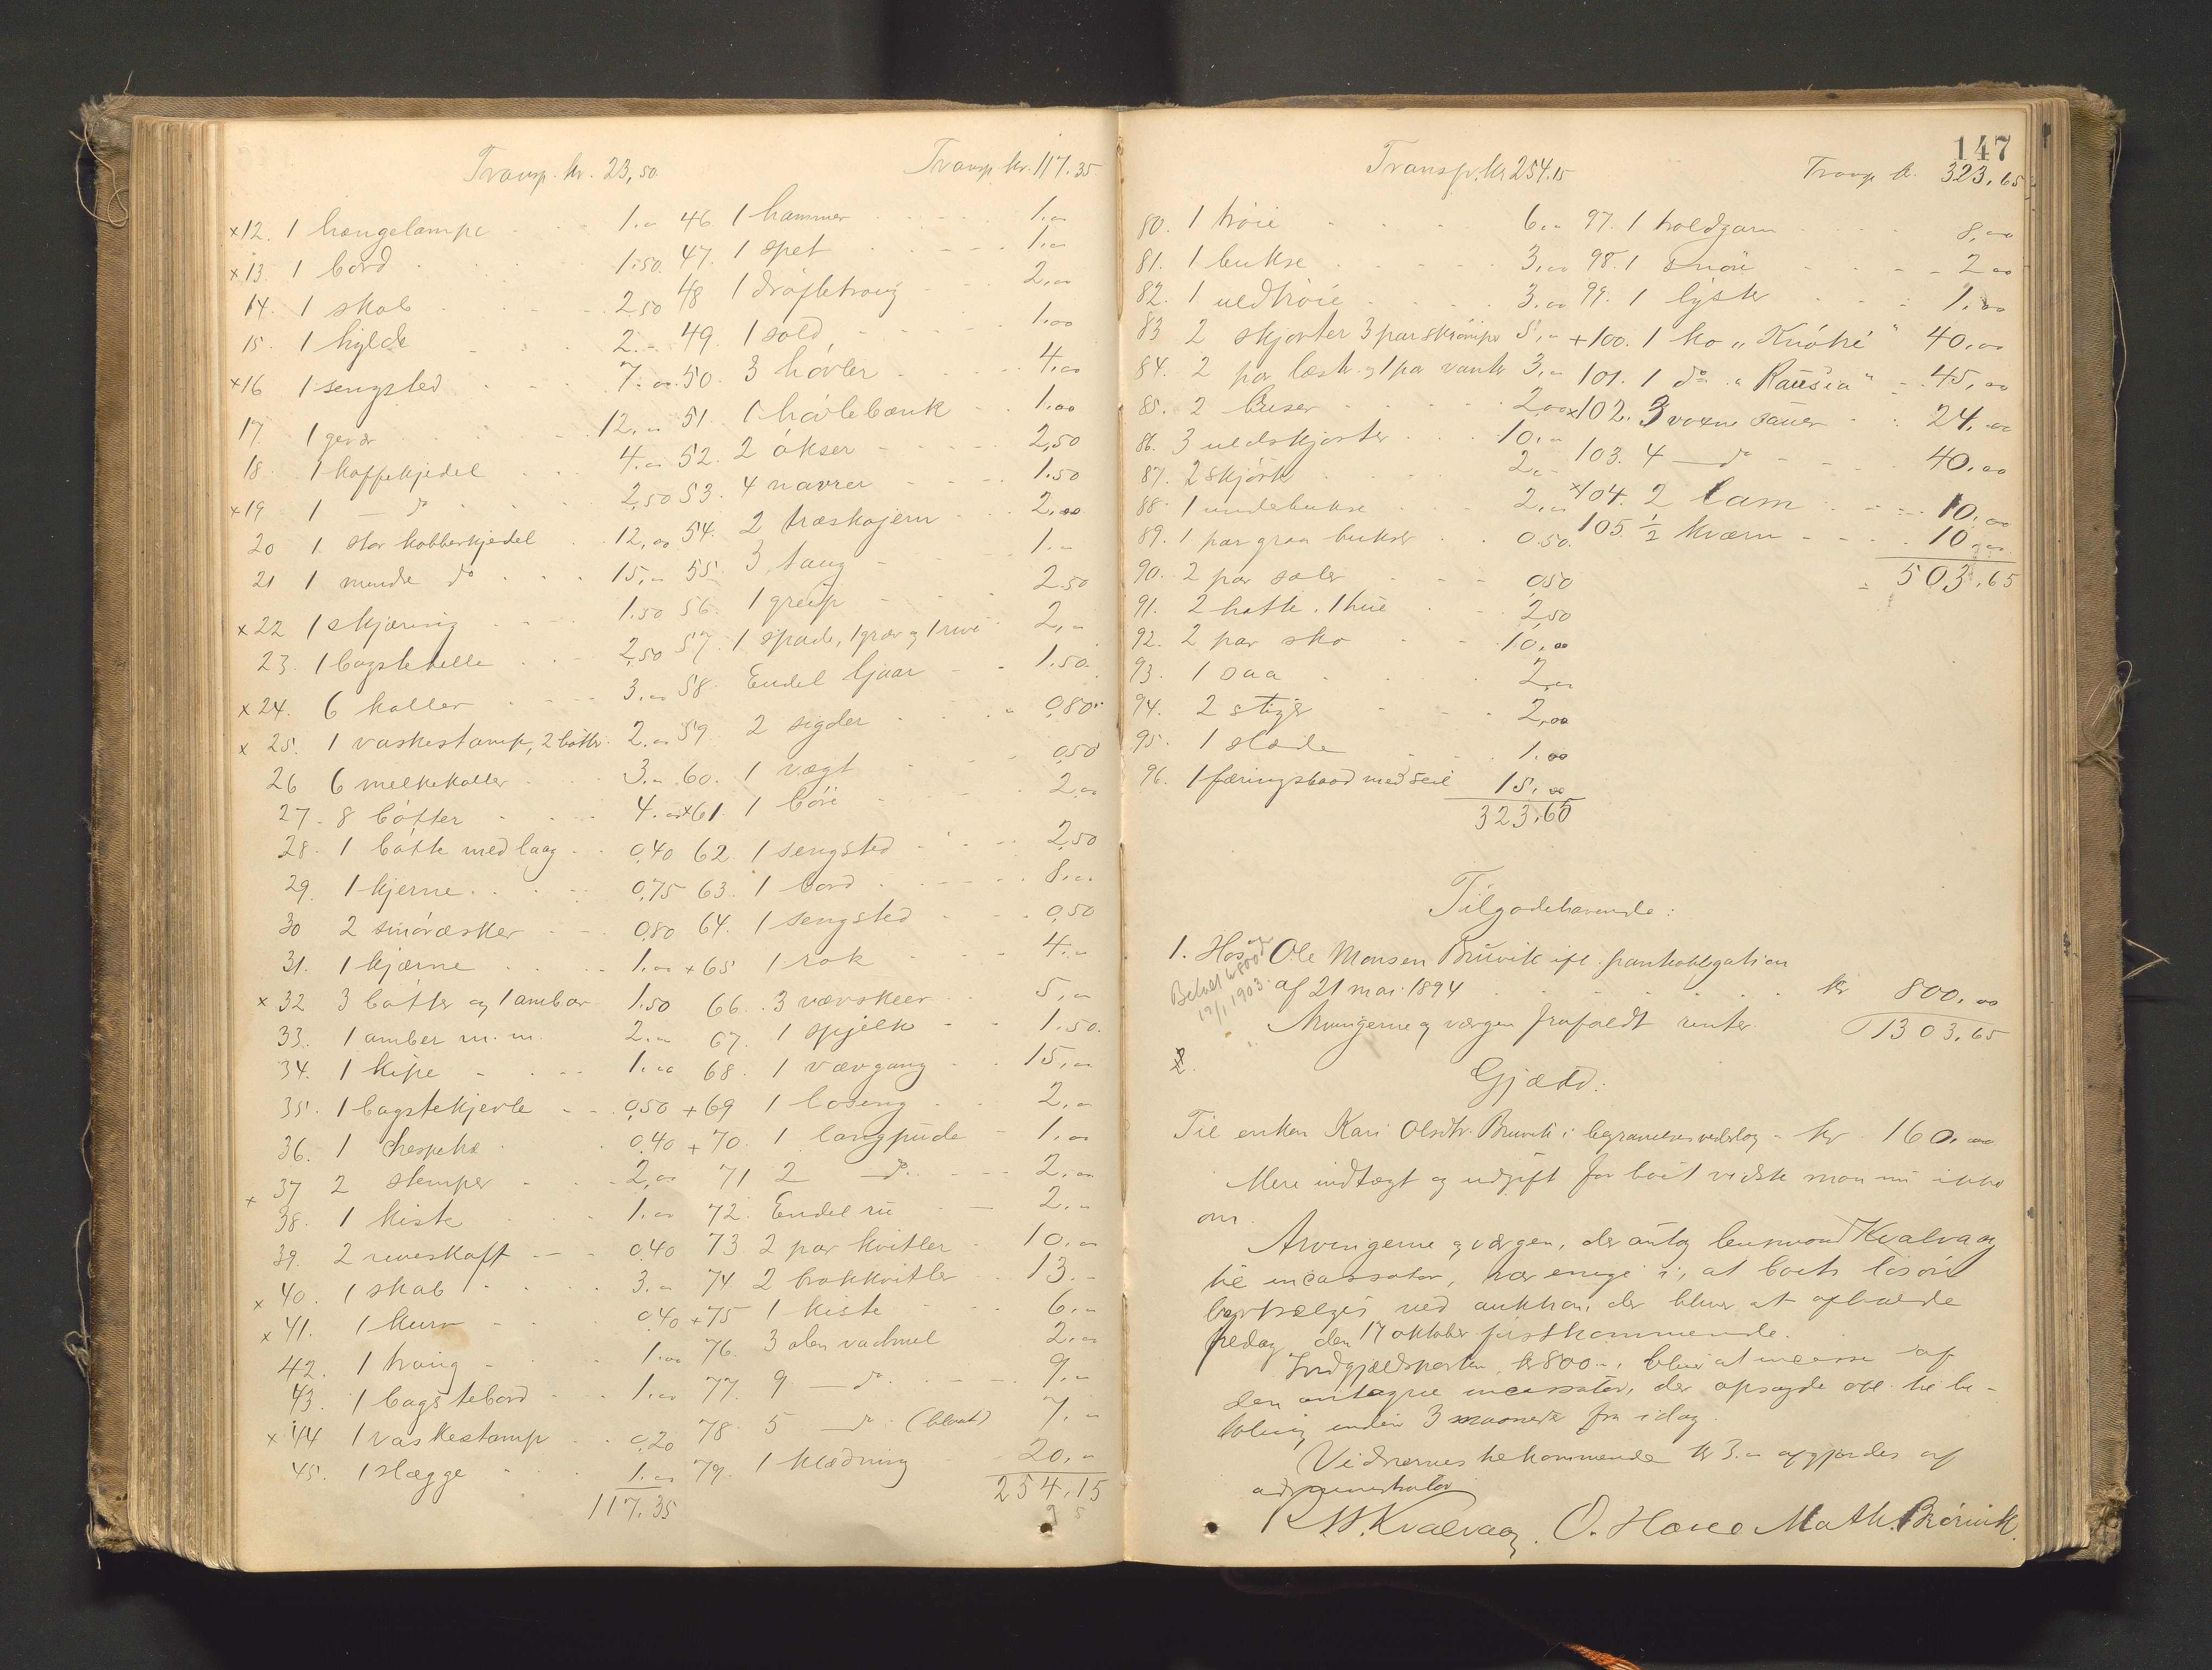 Transp. kr. 23,50
×12. 1 hængelampe 1.00
×13. 1 bord 1.50
14. 1 skab 2,50
15. 1 hylde 2.-
×16 1 sengsted 7.00
17. 1 gevær 12,00
18. 1 kaffekjedel 4.00
×19 1 — do 2,50
20 1 stor kobberkjedel 12,00
21 1 mindre do 15,00
×22 1 skjæring 1.50
23. 1 bagstehelle 2,50
×24. 6 koller 3.00
×25. 1 vaskestamp, 2 bøtter 2.00
26 6 melkekoller 3.00
27. 8 bøtter 4.00
28. 1 bøtte med laag 0,40
29. 1 kjerne 0,75
30 2 smøræsker 0,80
31. 1 kjærne 1.00
×32 3 bøtter og 1 ambar 1.50
33. 1 amber m.m. 2.00
34. 1 kipe 1.00
35. 1 bagstekjevle 0,50
36. 1 hespetræ 0.40
× 37 2 stamper 2,00
38. 1 kiste 1.00
39. 2 riveskaft 0.40
× 40. 1 skab 3.00
× 41. 1 kurv 0,40
42. 1 traug 1.00
43. 1 bagstebord 1.00
×44 1 vaskestamp 0,20
45. 1 slægge 1.00
117.35
Transp kr. 117.35
46. 1 hammer 1.00
47. 1 spet 1.00
48 1 drøftetraug 2.00
49. 1 sold 1.00
50. 3 høvler 4.00
51. 1 høvlebænk 1.00
52. 2 økser 2,50
53. 4 navrer 1.50
54. 2 træskojern 2.00
55. 3 tang 1.00
56. 1 greip 2.50
57. 1 spade, 1 græv og 1 rive 2,00
58. Endel ljaar 1.50
59. 2 sigder 0,80
60. 1 vægt 0,50
×61. 1 børe 2.00
62. 1 sengsted 2,50
63. 1 bord 8.00
64. 1 sengsted 0,50
×65 1 rok 4.00
66. 3 vævskeer 5,00
67. 1 spjelk 1.50
68. 1 vævgang 15,00
+69 1 boseng 2,00
+70. 1 langpude 1,00
71 2 — do 2,00
72. Endel ru 2,00
73. 2 par kvitler 10,00
74. 2 brokkvitler 13.-
+75 1 kiste 6.00
76. 3 alen vadmel 2.00
77. 9 — do 9.00
78. 5 — do (blaat) 7.00
79. 1 klædning 20,00
254.15
147
Transp. kr 254.15
80. 1 trøie 6.00
81. 1 bukse 3,00
82. 1 uldtrøie 3.00
83 2 skjorter 3 par strømper 5,00
84. 2 par læster og 1 par vanter 3,00
85. 2 buser 2,00
86. 3 uldskjorter 10,00
87. 2 skjørt 2,00
88. 1 underbukse 2,00
89. 1 par graa bukser 0.50
90. 2 par saler 0,50
91. 2 hatte, 1 hue 2,50
92. 2 par sko 10,00
93. 1 saa 2,00
94. 2 stiger 2,00
95. 1 slæde 1.00
96. 1 færingsbaad med seil 15,00
323.65
Transp kr. 323.65
97. 1 troldgarn 8,00
98. 1 snøre 2.00
99. 1 lyster 1,00
+100. 1 ko „Krókè" 40,00
101. 1 do „Rausia" 45,00
×102. 3 voxne sauer 24,00
103. 4 — do 40.00
×104. 2 lam 10.00
105 ½ kværn 10.00
503,65
Tilgodehavende:
1. Hos Ole Monsen Bruvik ifl. panteobligation
af 21 mai 1894 kr 800,00
Betalt kr 800
1903.
Arvingerne og værgen frafaldt renter 1303,65
Gjæld:
Til enken Kari Olsdtr. Bruvik i begravelsesvederlag kr 160,00
Mere indtægt og udgift for boet vidste man nu ikke
om.
Arvingerne og værgen, der antog lensmand Kvalvaag
til incassator, var enige i, at boets løsøre
bortsælges ved auktion, der bliver at afholde
fredag den 17 oktober førstkommende.
Jordgjældsposten kr 800.-, bliver at incasse af
den antagne incassator, der opsagde obl. til be-
taling inden 3 maaneder fra idag.
Vidnernes tilkommende kr 3.00 afgjordes af
administrator
Kvalvaag. O. Math. Brørvik.